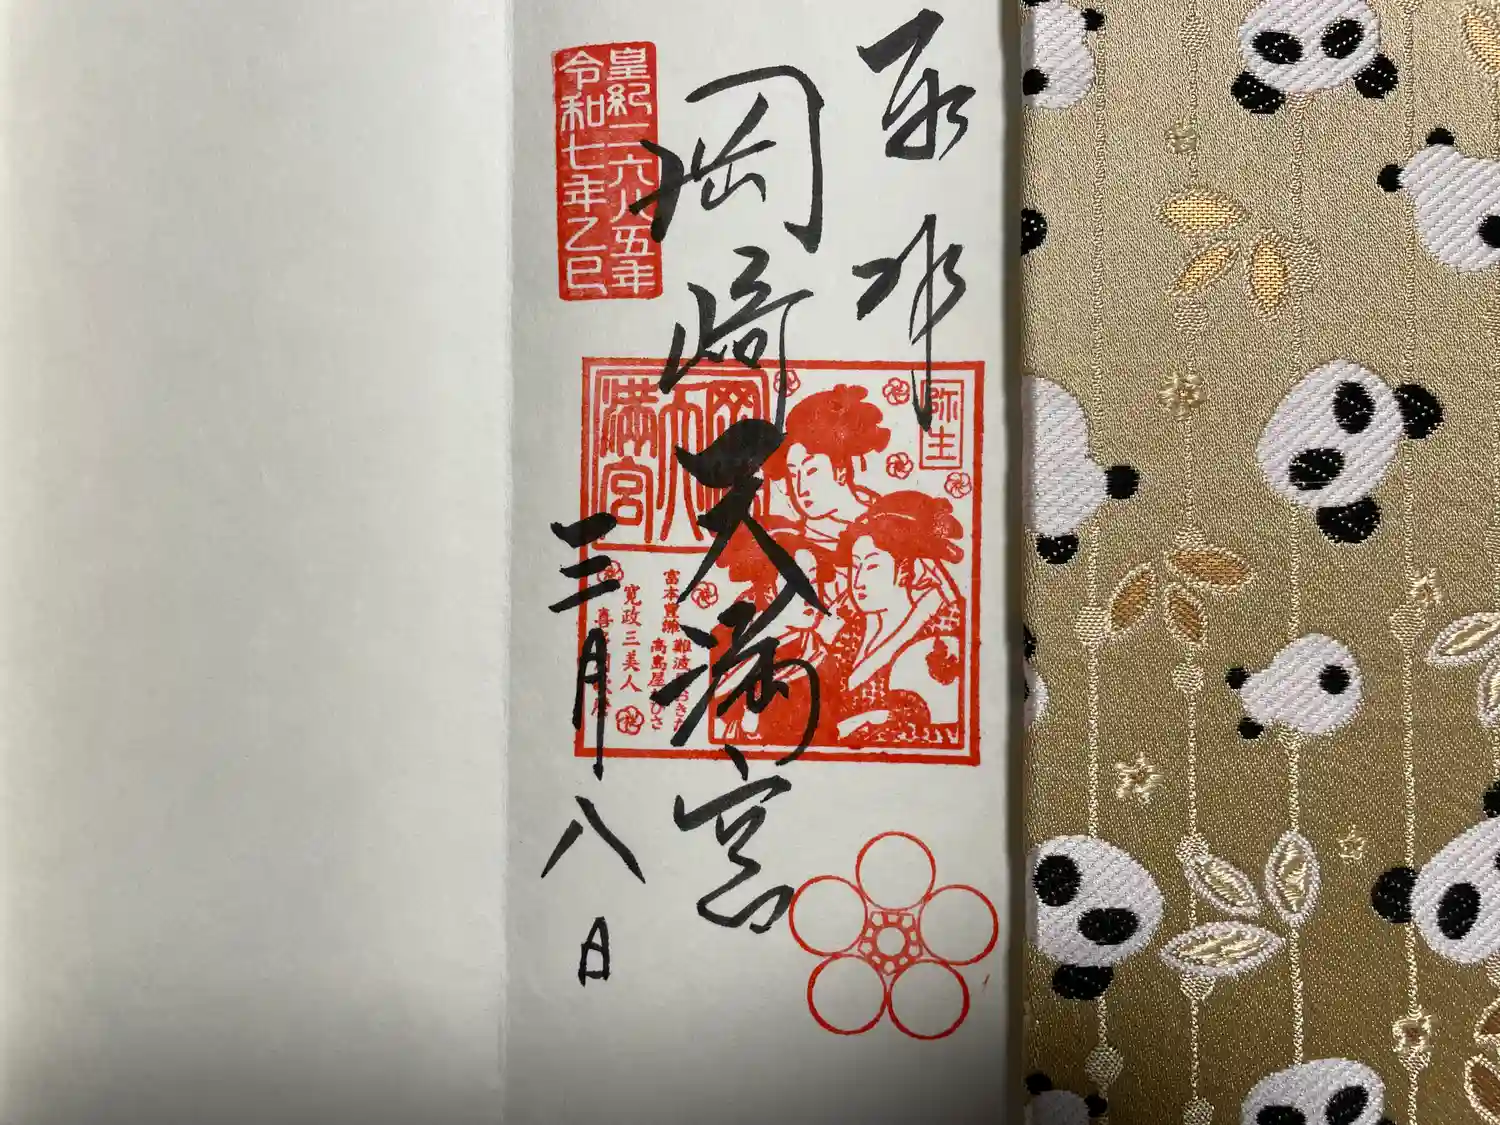 奉拝
岡崎天満宮
三月八日
皇紀二六八五年
令和七年乙巳
弥生
岡崎
天
満宮
富本豊雛
難波屋おきた
高島屋おひさ
寛政三美人
喜多川歌麿